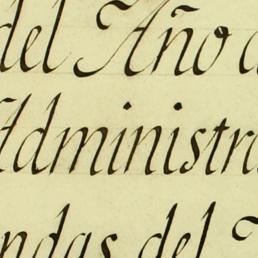 del Año d
Administra
ndas del